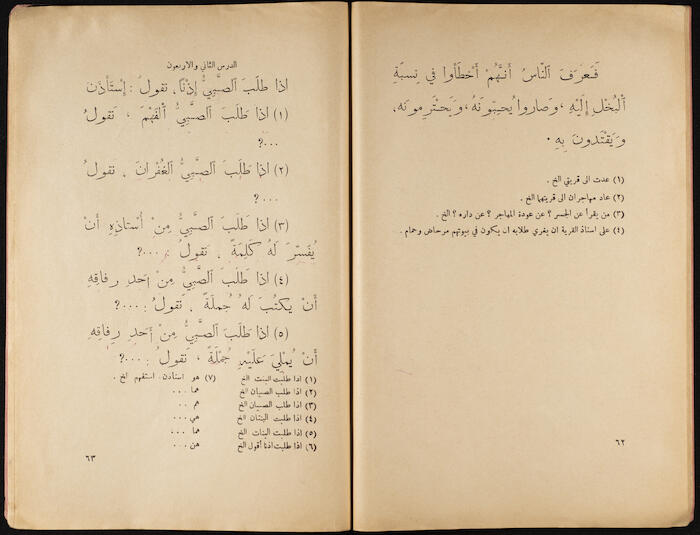 فَعَرَفَ ٱلنَّاسُ أَنَّهُمْ أَخْطَأُوا في نِسبَةِ
ٱلْبُخْلِ إِلَيْهِ ، وَصَاروا يُحِبّونَهُ ، وَيَحْتَرِمونَه،
وَيَقْتَدونَ بِهِ .
(١) عدت الى قريتي الخ .
(٢) عاد مهاجران الى قريتهما الخ .
(٣) من يقرأ عن الجسر ؟ عن عودة المهاجر ؟ عن داره ؟ الخ .
(٤) على استاذ القرية ان يغري طلابه ان يكون في بيوتهم مرحاض وحمام .
٦٢
الدرس الثاني والاربعون
اذا طَلَبَ ٱلصَّبِيُّ إِذْنًا، تقولُ : إِسْتَأْذَنَ
(١) اذا طَلَبَ ٱلصَّبِيُّ ٱلْفَهْمَ ، تَقولُ
...؟
(٢) اذا طَلَبَ ٱلصَّبِيُّ ٱلْغُفْرانَ ، تقولُ
...؟
(٣) اذا طَلَبَ ٱلصَّبِيُّ مِنْ أُسْتاذِهِ أَنْ
يُفَسِّرَ لَهُ كَلِمَةً ، تَقولُ : ...؟
(٤) اذا طَلَبَ ٱلصَّبِيُّ مِنْ أَحَدِ رِفاقِهِ
أَنْ يكتُبَ لَهُ جُملَةً ، تَقولُ : ...؟
(٥) اذا طَلَبَ ٱلصَّبِيُّ مِنْ أَحَدِ رِفاقِهِ
أَنْ يُمْلِيَ عَلَيْهِ جُمْلَةً ، تَقولُ : ...؟
(١) اذا طلبت البنت الخ (٧) هو استأذن، استفهم الخ .
(٢) اذا طلب الصبيان الخ هما ...
(٣) اذا طلب الصبيان الخ هم ...
(٤) اذا طلبت البنتان الخ هي ...
(٥) اذا طلبت البنات الخ هما ...
(٦) اذا طلبت اذناً أقول الخ هن ...
٦٣